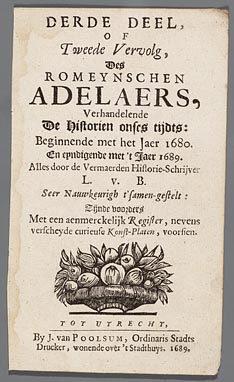 DERDE DEEL,
OF
Tweede Vervolg,
Des
ROMEYNSCHEN
ADELAERS,
Verhandelende
De Historien onses tijdts:
Beginnende met het Jaer 1680.
En eyndigende met 't Jaer 1689.
Alles door de Vermaerden Historie-Schrijver
L. v. B.
Seer Nauwkeurigh t'samen-gestelt:
Zijnde voorders
Met een aenmerckelijk Register, nevens
verscheyde curieuse Konst-Platen, voorsien.
TOT UYTRECHT,
By J. van POOLSUM, Ordinaris Stadts
Drucker, wonende over 't Stadthuys. 1689.